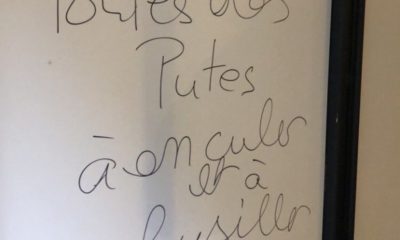 Toutes des
Putes
à enculer
et à
fusiller